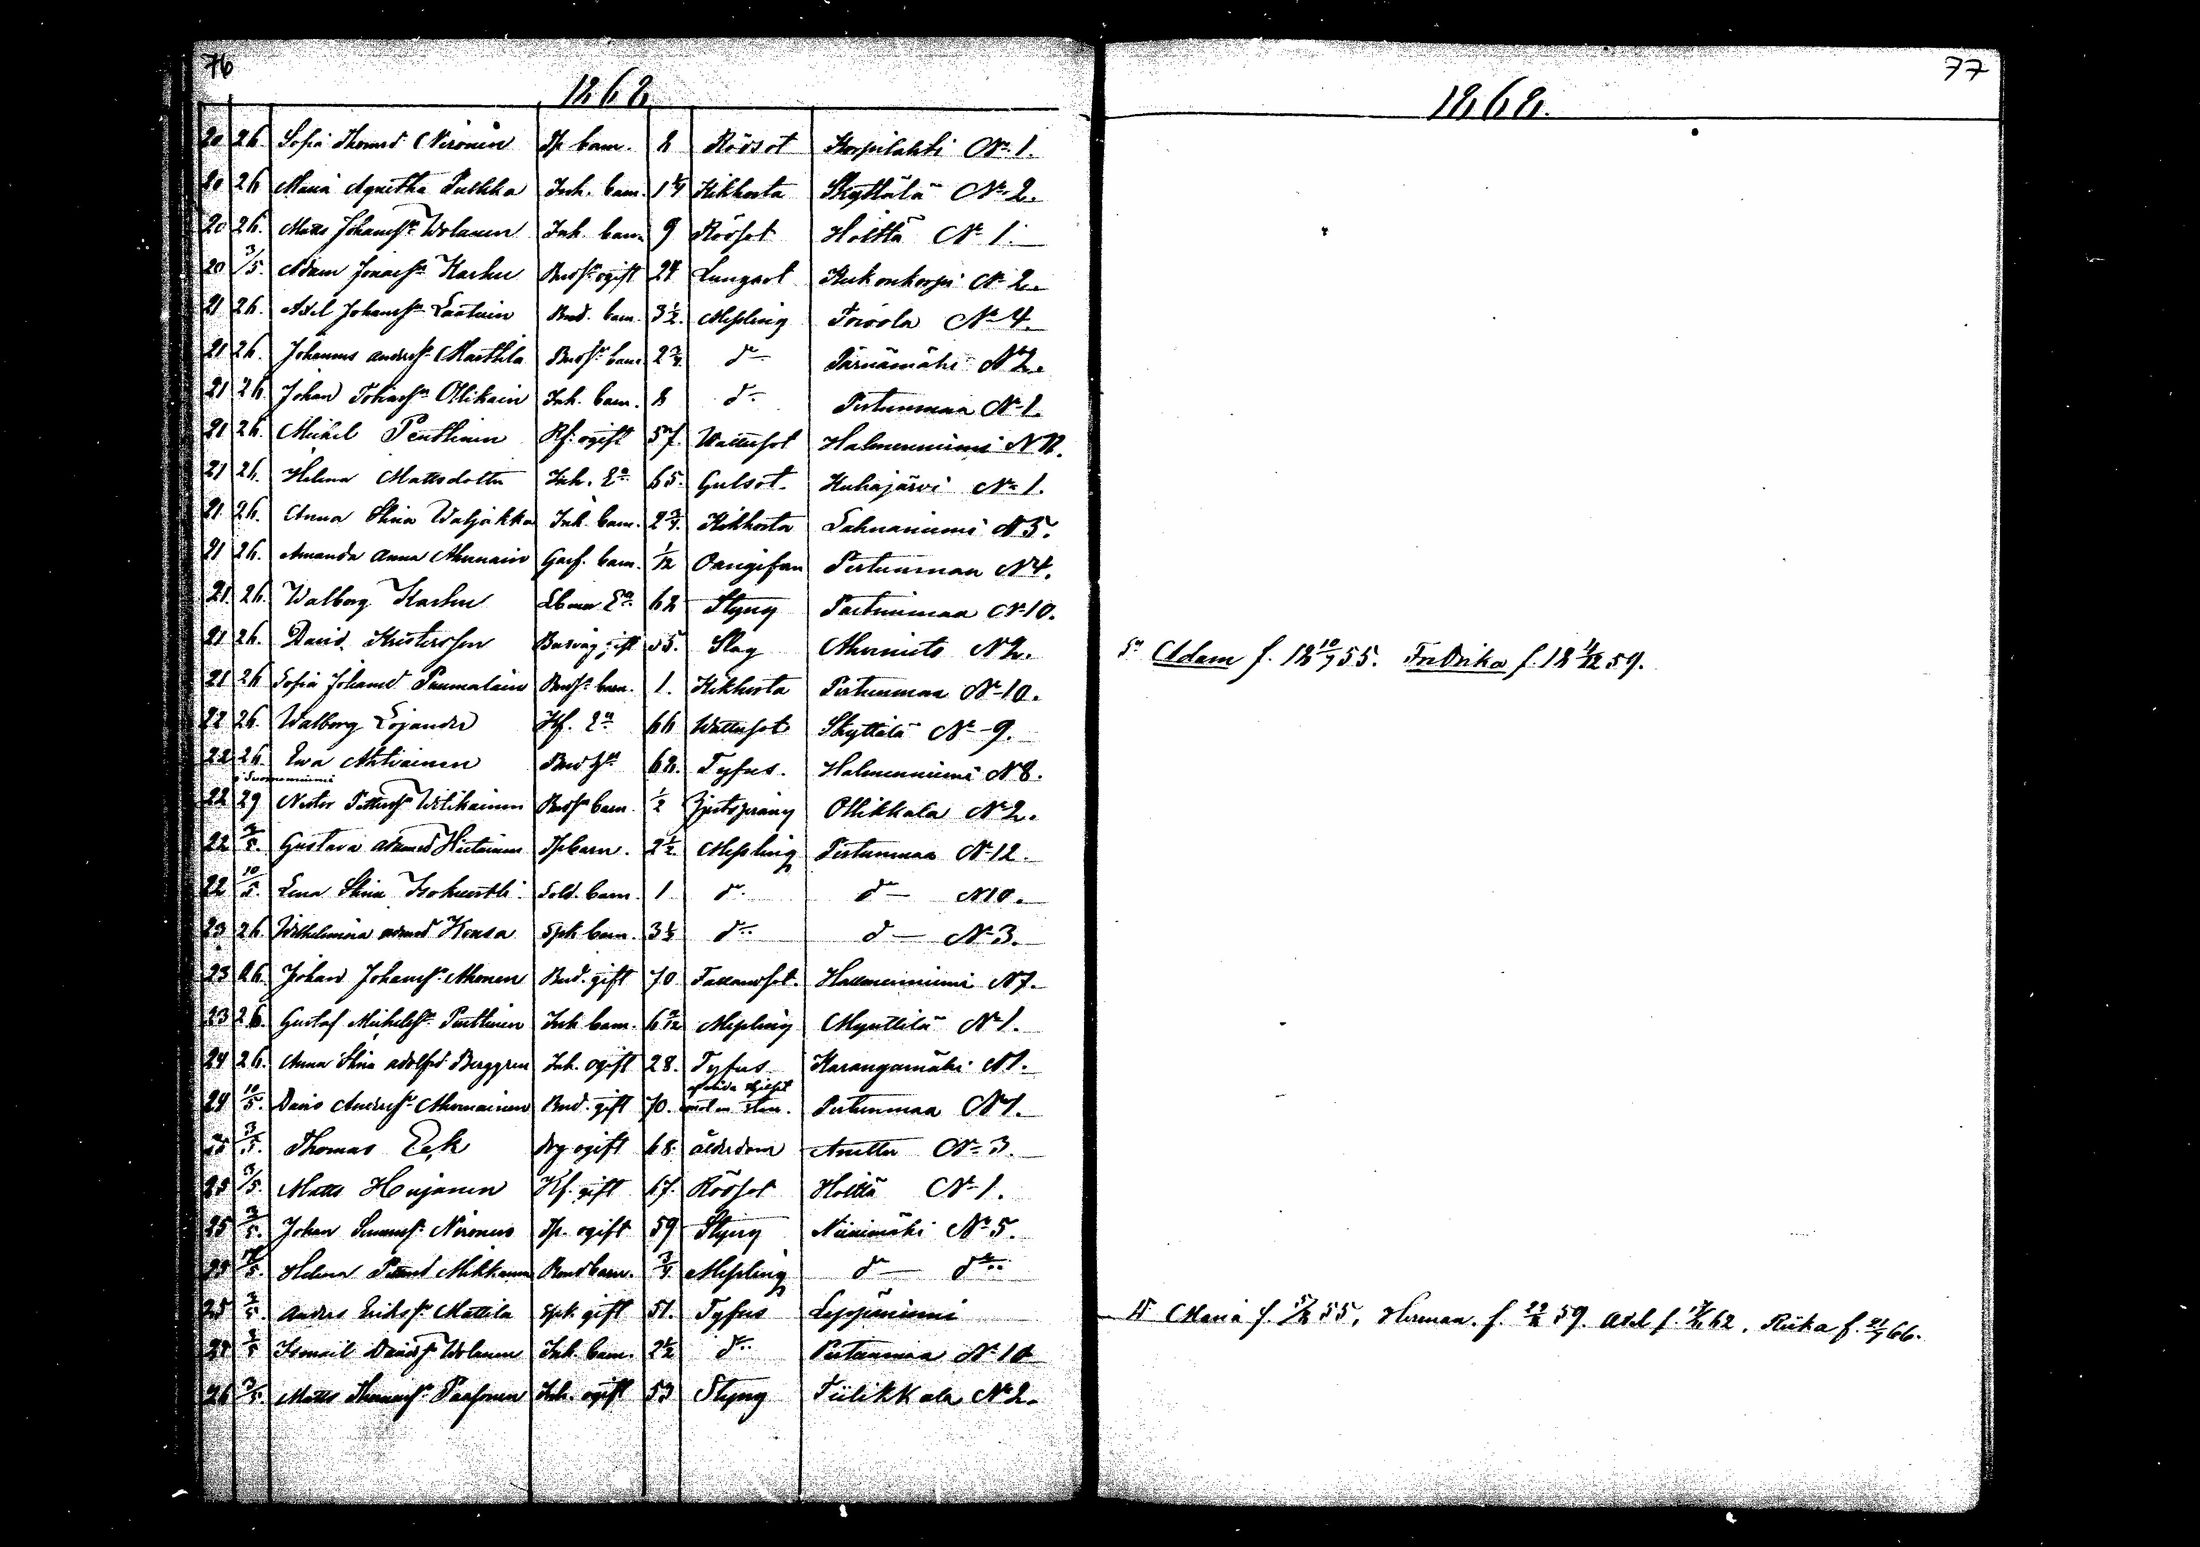 76
1868
20 26. Sofia Thomsd Nironen Tp barn. 8 Rödsot Korpilahti No 1.
20 26 Maria Agnetha Pulkka Inh. barn. 1 1/4 Kikhosta Skyttälä No 2.
20 26. Matts Johanss. Wolanen Inh. barn 9 Rödsot Hölttä No 1.
20 3/5. Adam Jonass. Karhu Bondss. ogift 24 Lungsot Kukonkorpi No 2.
21 26. Axel Johanss. Laatuin Bond. barn 3 1/2. Messling Toivola No 4.
21 26. Johannes Anderss. Marttila Bondss. barn 2 3/4. do Pärnämäki No 2.
21 26. Johan Tobiass. Ollikain Inh. barn. 8 do Pertunmaa No 1.
21 26. Michel Penttinen Kf. ogift 57. Wattusot Halmenniemi N 12.
21 26. Helena Mattsdotter Inh. Ea 65. Gulsot. Kuhajärvi No 1.
21 26. Anna Stina Waljakka Inh. barn. 2 3/4. Kikhosta Lahnaniemi N 5.
21 26. Amanda Anna Ahvenain Gerf. barn. 1/12 Oangifven Pertunmaa N 4.
21. 26. Walborg Karhu Ea 62 Styng Pertunmaa No 10.
21 26. David Kristersson gift 55. Slag Ahvenisto N 2.
21 26 Sofia Johansd Paumalain Bondss. barn. 1. Kikhosta Pertunmaa No 10.
22 26. Walborg Lojander Kf. Ea 66 Wattusot Skyttälä No 9.
22 26. Ewa Ahtiainen 62. Tyfus. Halmenniemi N 8.
i Suonenniemi
22 29 Nestor Petterss. Wilikainen Bondss. barn. 1/2 Hjertsprång Ollikkala No 2.
22 3/5. Gustava Adamsd Hietainen Tp barn. 2 1/2. Messling Pertunmaa No 12.
22 10/5. Lena Stina Isokuortti Sold. barn. 1 do do N 10.
23 26. Wilhelmina Adamsd Konsa Spk barn. 3 1/2 do do No 3.
23 26. Johan Johanss. Ahonen Bond. gift 70 Fallandsot. Halmenniemi N 7.
23 26. Gustaf Michelss. Penttinen Inh barn. 6 Messling Mynttilä No 1.
24 26. Anna Stina Adolfsd Berggren Inh. ogift 28. Tyfus Karangamäki N 1.
24 10/5. David Anderss. Ahvenainen Bond. gift 70. Pertunmaa No 1.
25 3/5. Thomas Eek ogift 68. ålderdom No 3.
25 3/5. Matts Heijanen Kf. gift 67. Rödsot Hölttä No 1.
25 3/5. Johan Simonss. Nironen Tp. ogift 59 Styng Niinimäki No 5.
25 Helena Pettersd Mikkonen Bond barn. 3/4 Messling do do
25 3/5 Anders Erikss. Mattila Spk gift 51. Tyfus Leppäniemi
25 3/5 Ismail Davidss Wolanen Inh. barn. 2 1/2 do Pertunmaa No 10
26 3/5. Matts Thomass. Paasonen Inh. ogift 53 Styng Tiilikkala No 2.
77
1868.
Adam f. 18 10/7 55. Fredrika f. 18 59.
Maria f. 55, Herman. f. 59. Axel f. 62, Riika f. 21/7 66.